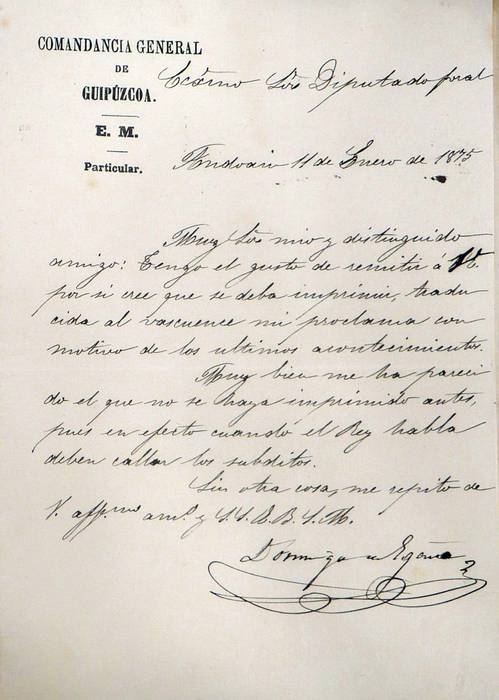 COMANDANCIA GENERAL
DE
GUIPÚZCOA.
E. M.
Particular.
Ecsmo Sór Diputado foral
Andoain 11 de Enero de 1875
Muy Sór mio y distinguido
amigo: Tengo el gusto de remitir á V.
por si cree que se deba imprimir, tradu
cida al vascuence mi proclama con
motivo de los ultimos acontecimientos.
Muy bien me ha pareci
do el que no se haya imprimido antes,
pues en efecto cuando el Rey habla
deben callar los subditos.
Sin otra cosa, me repito de
V. affmo amº y S. S. Q. B. S. M.
Domingo de Egaña